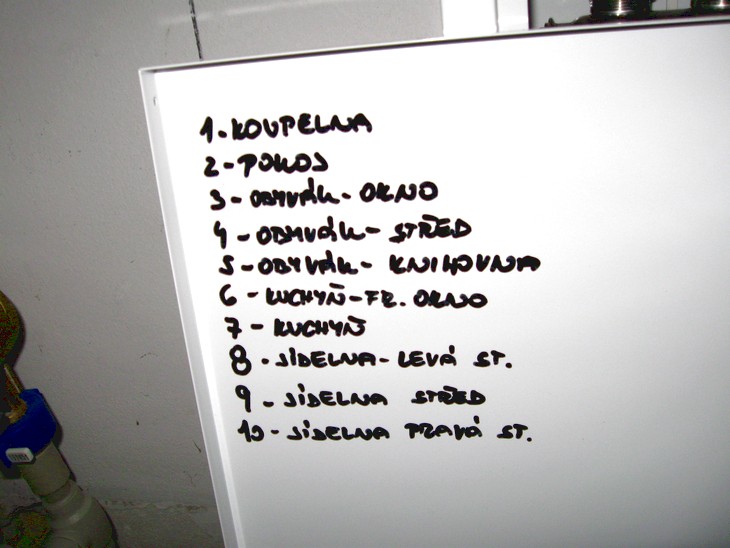 1-KOUPELNA
2-POKOJ
3-OBÝVÁK-OKNO
4-OBÝVÁK-STŘED
5-OBYVÁK-KNIHOVNA
6-KUCHYŇ-FR. OKNO
7-KUCHYŇ
8-JÍDELNA-LEVÁ ST.
9-JÍDELNA STŘED
10-JÍDELNA PRAVÁ ST.